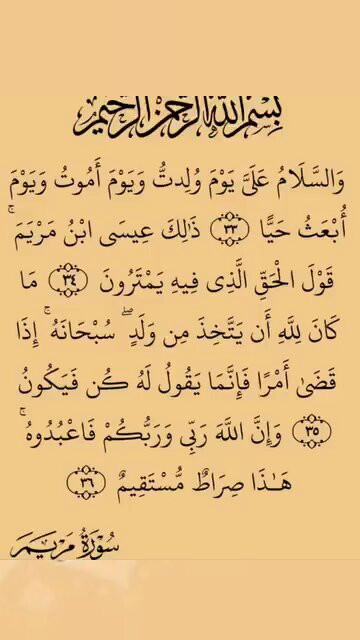 بِسْمِ اللَّهِ الرَّحْمَٰنِ الرَّحِيمِ
وَالسَّلَامُ عَلَيَّ يَوْمَ وُلِدتُّ وَيَوْمَ أَمُوتُ وَيَوْمَ
أُبْعَثُ حَيًّا ﴿٣٣﴾ ذَٰلِكَ عِيسَى ابْنُ مَرْيَمَ ۚ
قَوْلَ الْحَقِّ الَّذِي فِيهِ يَمْتَرُونَ ﴿٣٤﴾ مَا
كَانَ لِلَّهِ أَن يَتَّخِذَ مِن وَلَدٍ ۖ سُبْحَانَهُ ۚ إِذَا
قَضَىٰ أَمْرًا فَإِنَّمَا يَقُولُ لَهُ كُن فَيَكُونُ
﴿٣٥﴾ وَإِنَّ اللَّهَ رَبِّي وَرَبُّكُمْ فَاعْبُدُوهُ ۚ
هَـٰذَا صِرَاطٌ مُّسْتَقِيمٌ ﴿٣٦﴾
سُورَةُ مَرْيَمَ